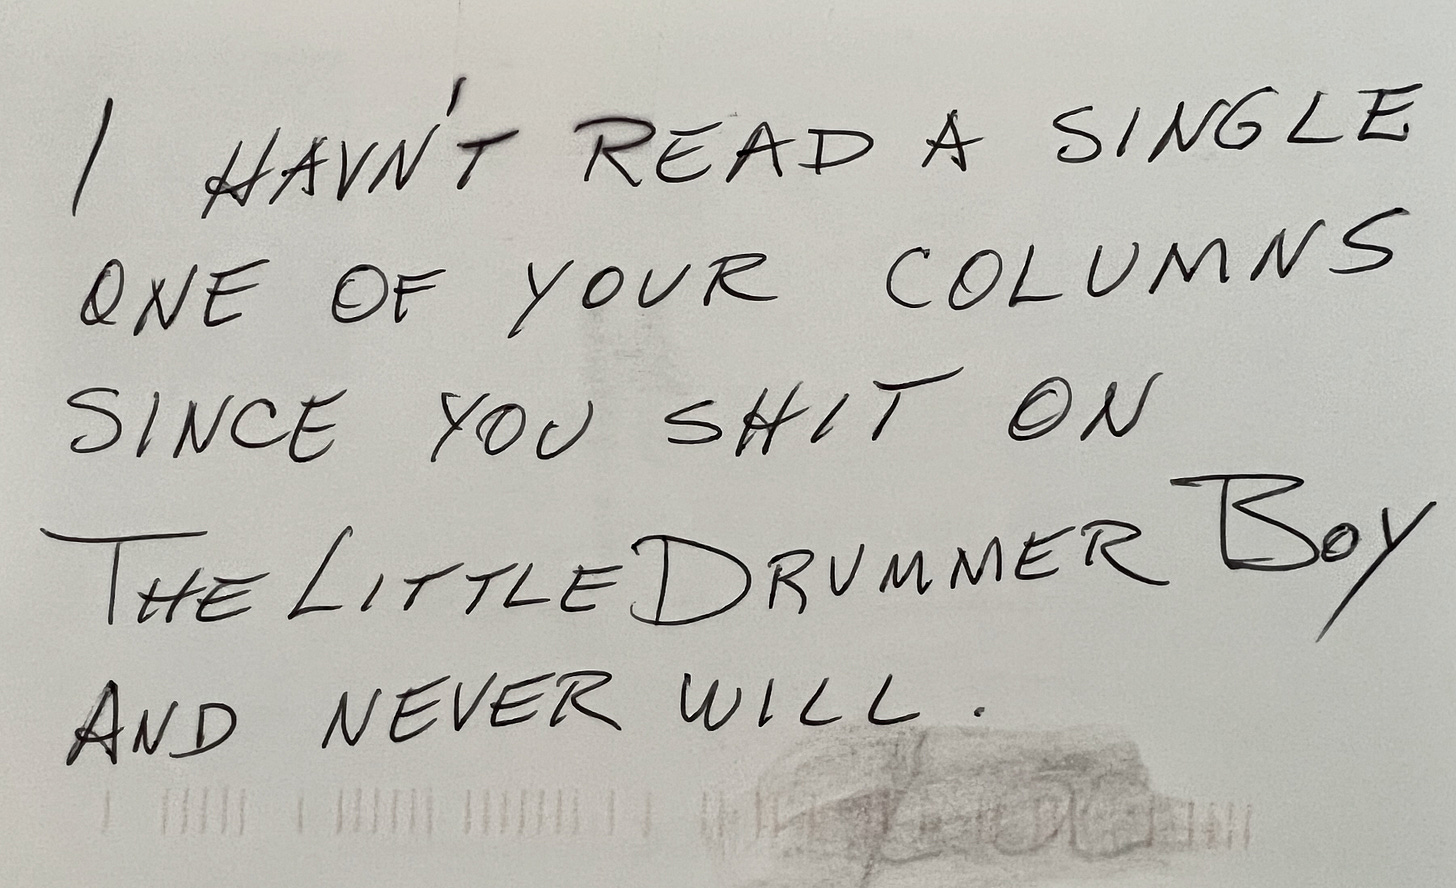 I HAVN'T READ A SINGLE
ONE OF YOUR COLUMNS
SINCE YOU SHIT ON
THE LITTLE DRUMMER BOY
AND NEVER WILL.